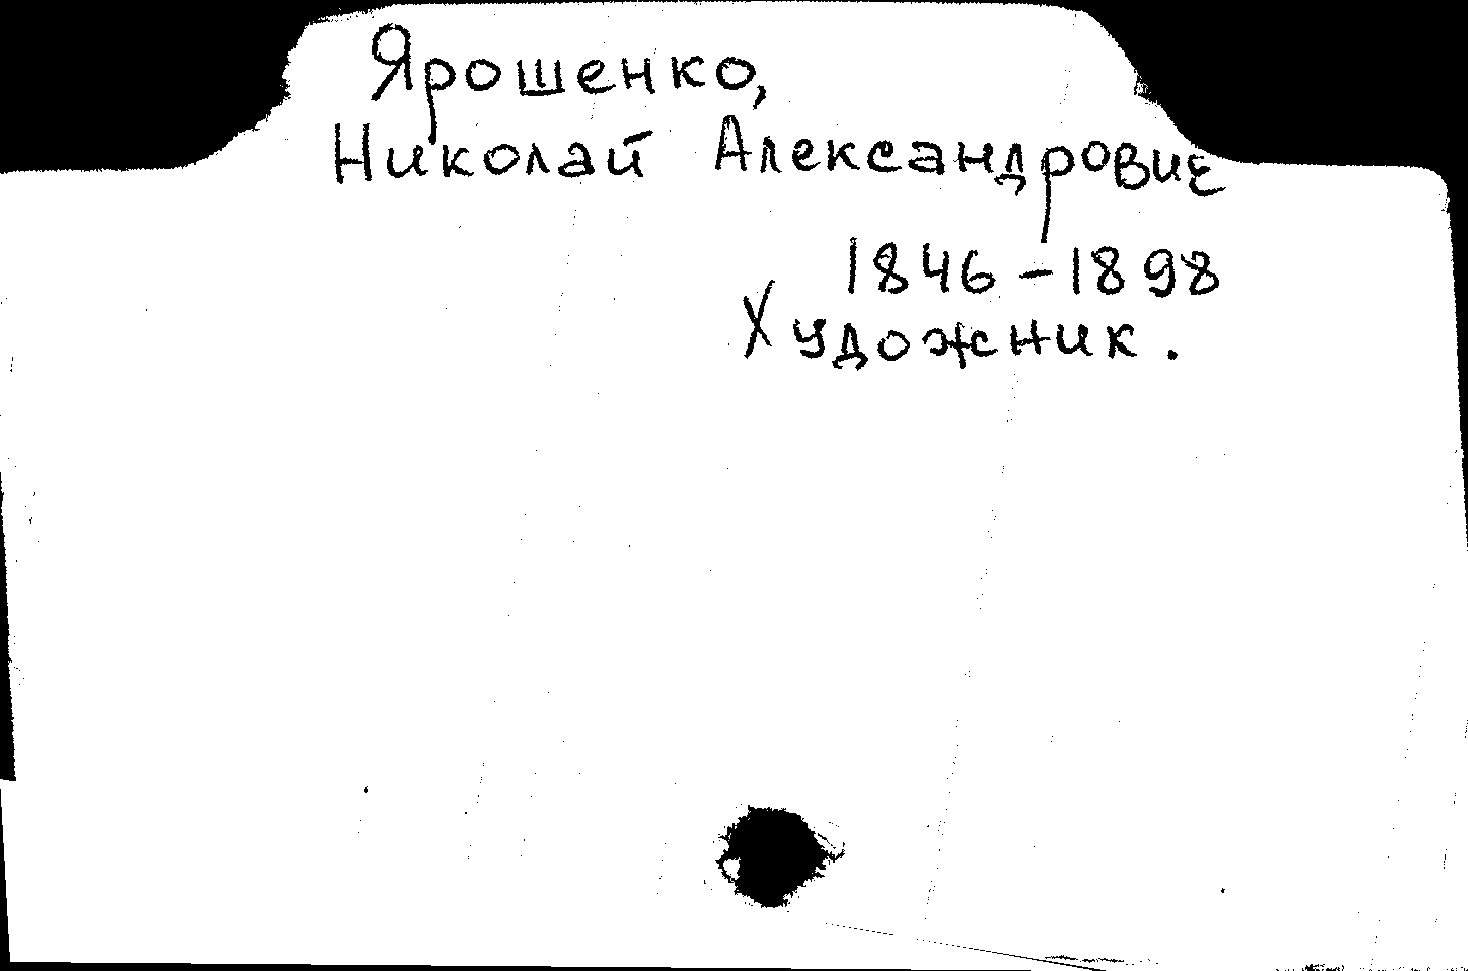 Ярошенко,
Николай Александрович
1846-1898
Художник.